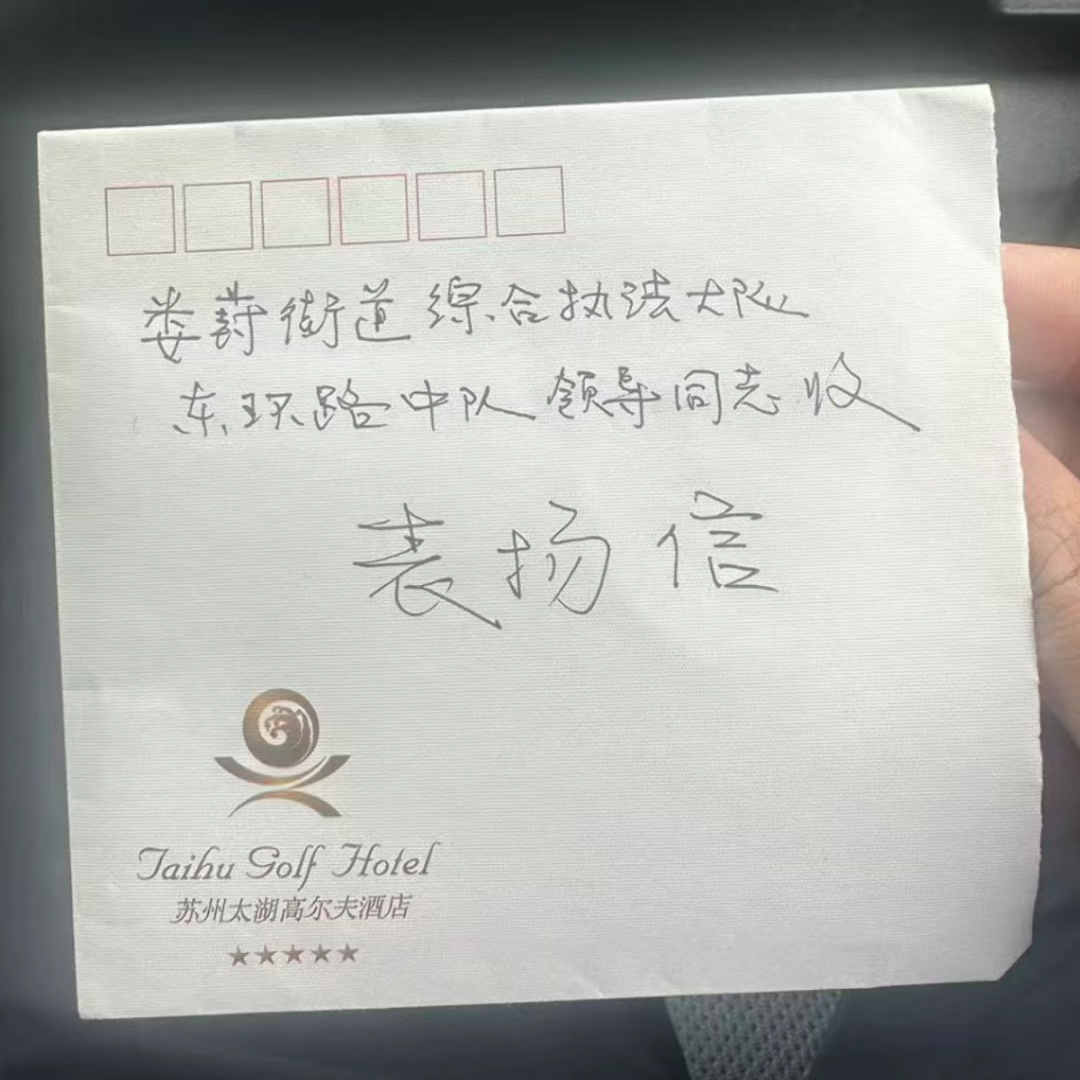 娄葑街道综合执法大队
东环路中队领导同志收
表扬信
Taihu Golf Hotel
苏州太湖高尔夫酒店
★★★★★